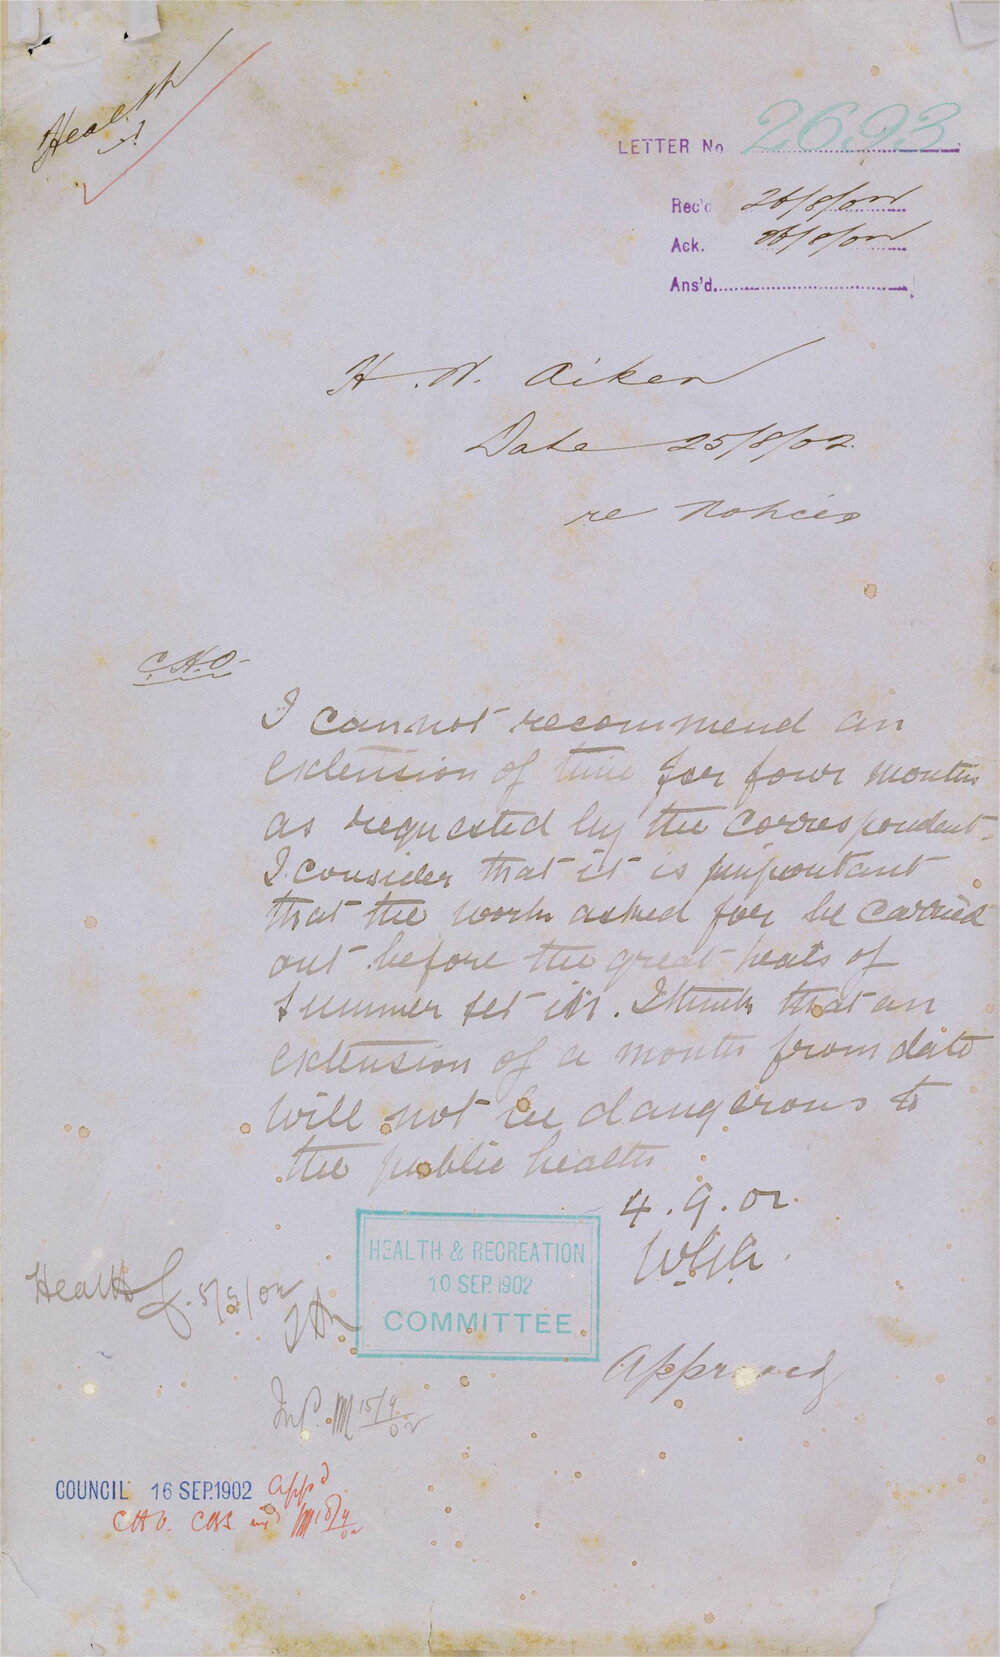 Health
LETTER No 2693
Rec'd 26/8/02
Ack. 26/8/02
Ans'd.
H. W. Aiken
Date 25/8/02.
re Notices
C.H.O.
I cannot recommend an
extension of time for four months
as requested by the correspondent.
I consider that it is important
that the work asked for be carried
out before the great heats of
summer set in. I think that an
extension of a month from date
will not be dangerous to
the public health
4.9.02.
HEALTH & RECREATION
10 SEP. 1902
COMMITTEE
Health 5/9/02
Approved
Inf. 15/9/02
COUNCIL 16 SEP. 1902 appd
CHO.